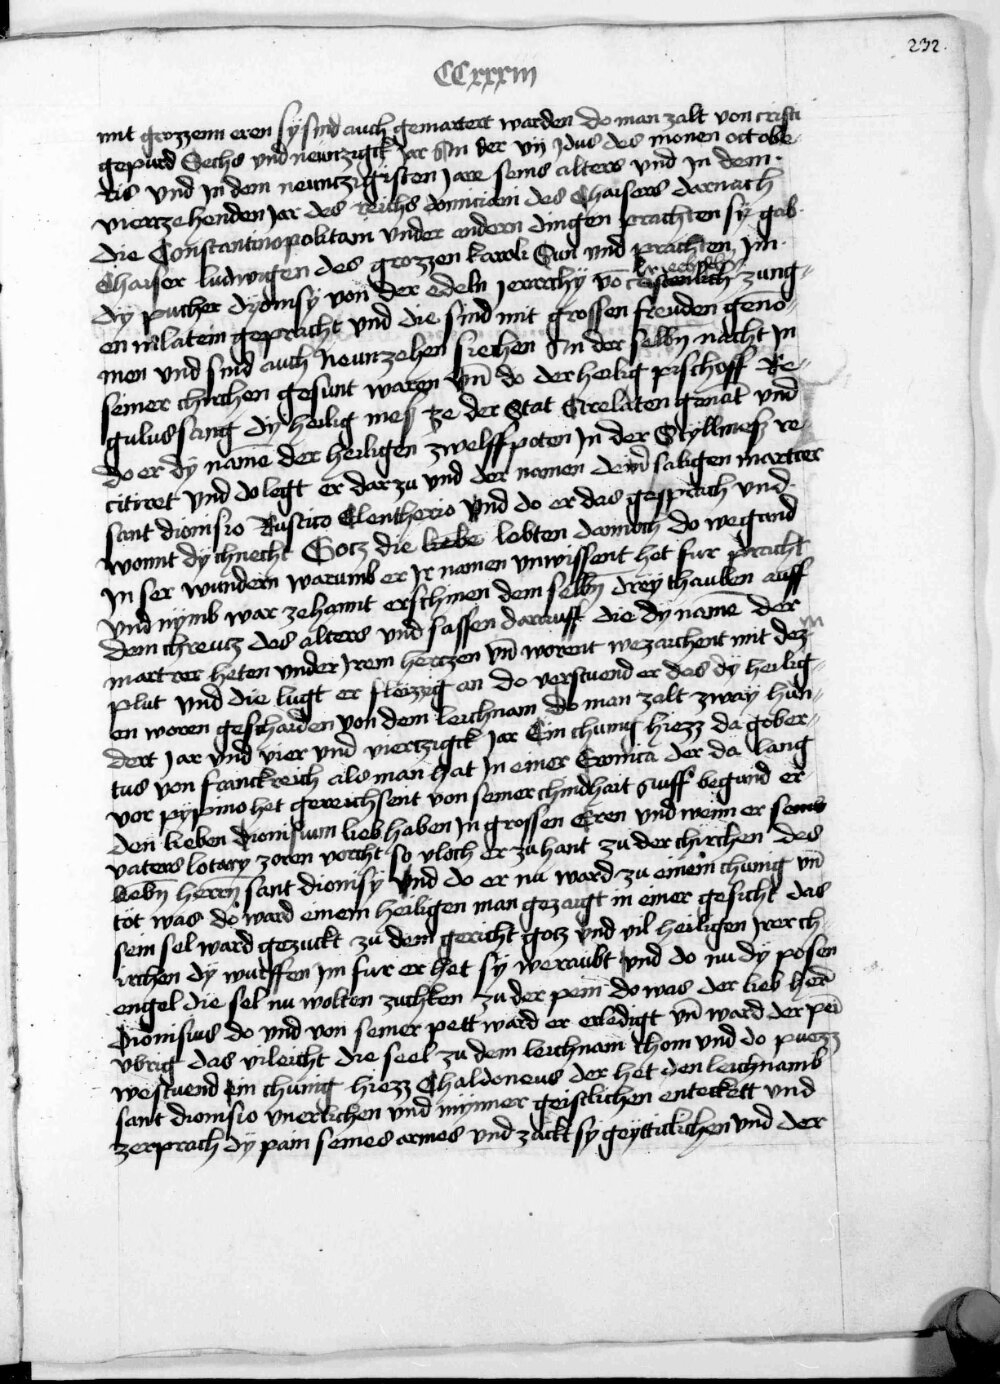 232.
CCxxxiii
mit grozzenn eren sy sind auch gemartert warden do man zalt von cristi
gepurd Sechs und neuntzigck Jar An der vij Idus des monen octobe-
ris und In dem neuntzigisten Jare seins alters und In dem
vierrzehenden Jar des reichs domiciani des Chaisers darnach
die Constantinopolitani under andern dingen prachten sy gab
Chaiser ludwigen des grozzen karoli Sun und prachten Im
dy pucher dyonisy von der edeln Jerarchy vo kriechischer zung-
en in latein gepracht und die sind mit grossen freuden geno-
men und sind auch Neunzehen siechen An der selbn nacht In
seiner chirchen gesunt waren Vnd do der heilig pischoff Re-
gulus sang dy heilig mess ze der Stat Arelaten genat und
do er dy name der heiligen zwelffpoten In der Styllmess re-
citiret und do legt er darzu und der namen deine saligen martrer
sant dionisio Rustico Elentherio Und do er das gesprach und
wonnt dy chnecht Gotz die liebe lebten dannoch do wegund
In ser wundern warumb er Ir namen unwissent het fur pracht
Und nymb war zehannt erschinen dem selbn drey thauben auff
dem chreutz des alters und sassen darauff die dy name der
martrer heten under Irem hertzen vn worent wezaichent mit dez
plut und die lugt er fleizzig an do verstuend er das dy heilig-
en woren geschaiden von dem leichnam do man zalt zway hun-
dert Jar und vier und viertzigck Jar Ein chunig hiezz dagober-
tus von franckreich als man hat In einer Cronica der da lang
vor pypino het gereichsent von seiner chindhait auff begund er
den lieben Dionisium lieb haben In grossen Eren und wenn er seins
vaters lotary zoren vorcht so vloch er zu hant zu der chirchen des
liebn herrn sant dionisy Und do er nu ward zu einem chunig vn
tot was do ward einem heiligen man gezaigt in einer gesicht das
sein sel ward gezuckt zu dem gericht gotz und vil heiligen Irer ch-
irchen dy wurffen Im fur er het sy weraubt und do nu dy posen
engel die sel nu wolten zuchken zu der pein do was der lieb herr
Dionisius do und von seiner pett ward er erledigt vn ward der pein
ubrig das vileicht die seel zu dem leichnam chom und do puezz
westuend Ein chunig hiezz Chaldoneus der het den leichnamb
sant dionisio unerlichen und mynner geistlichen enteckett und
zerprach dy pain seines armes und zuckt sy geyttiklichen und der